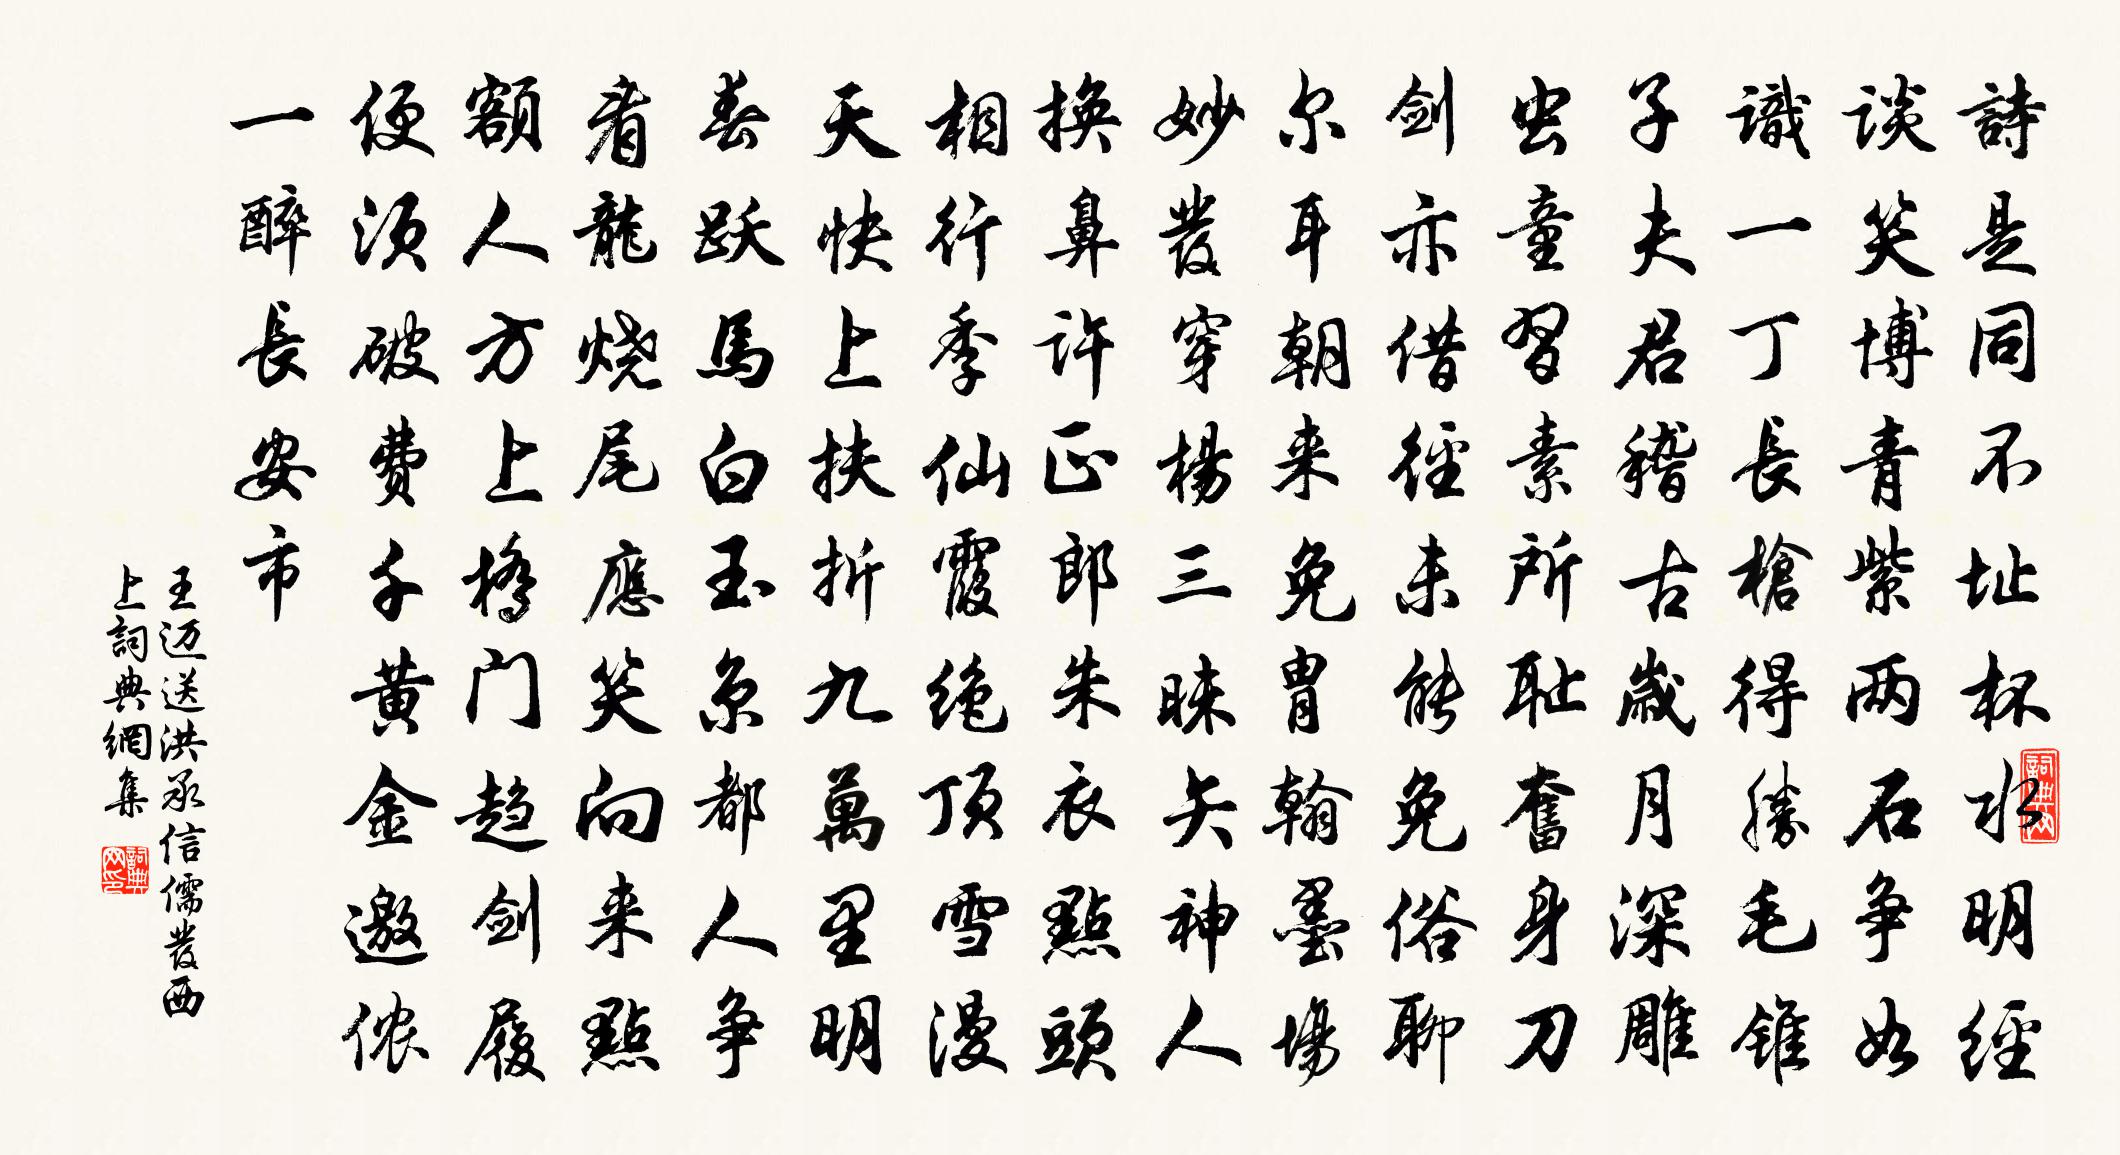 詩是同不址杯水明經
谈笑博青紫两石争如
識一丁長槍得勝毛錐
子夫君稽古歲月深雕
虫童習素所耻奮身刀
剑亦借徑未能免俗聊
尔耳朝来免胄翰墨場
妙發穿楊三昧矢神人
換鼻许正郎朱衣點頭
相行季仙霞绝顶雪漫
天快上扶折九萬里明
春跃馬白玉京都人争
看龍烧尾應笑向来點
額人方上橋门趋剑履
便须破费千黄金邀侬
一醉長安市
王迈送洪承信儒發西
上詞典網集
詞典网
詞典网印